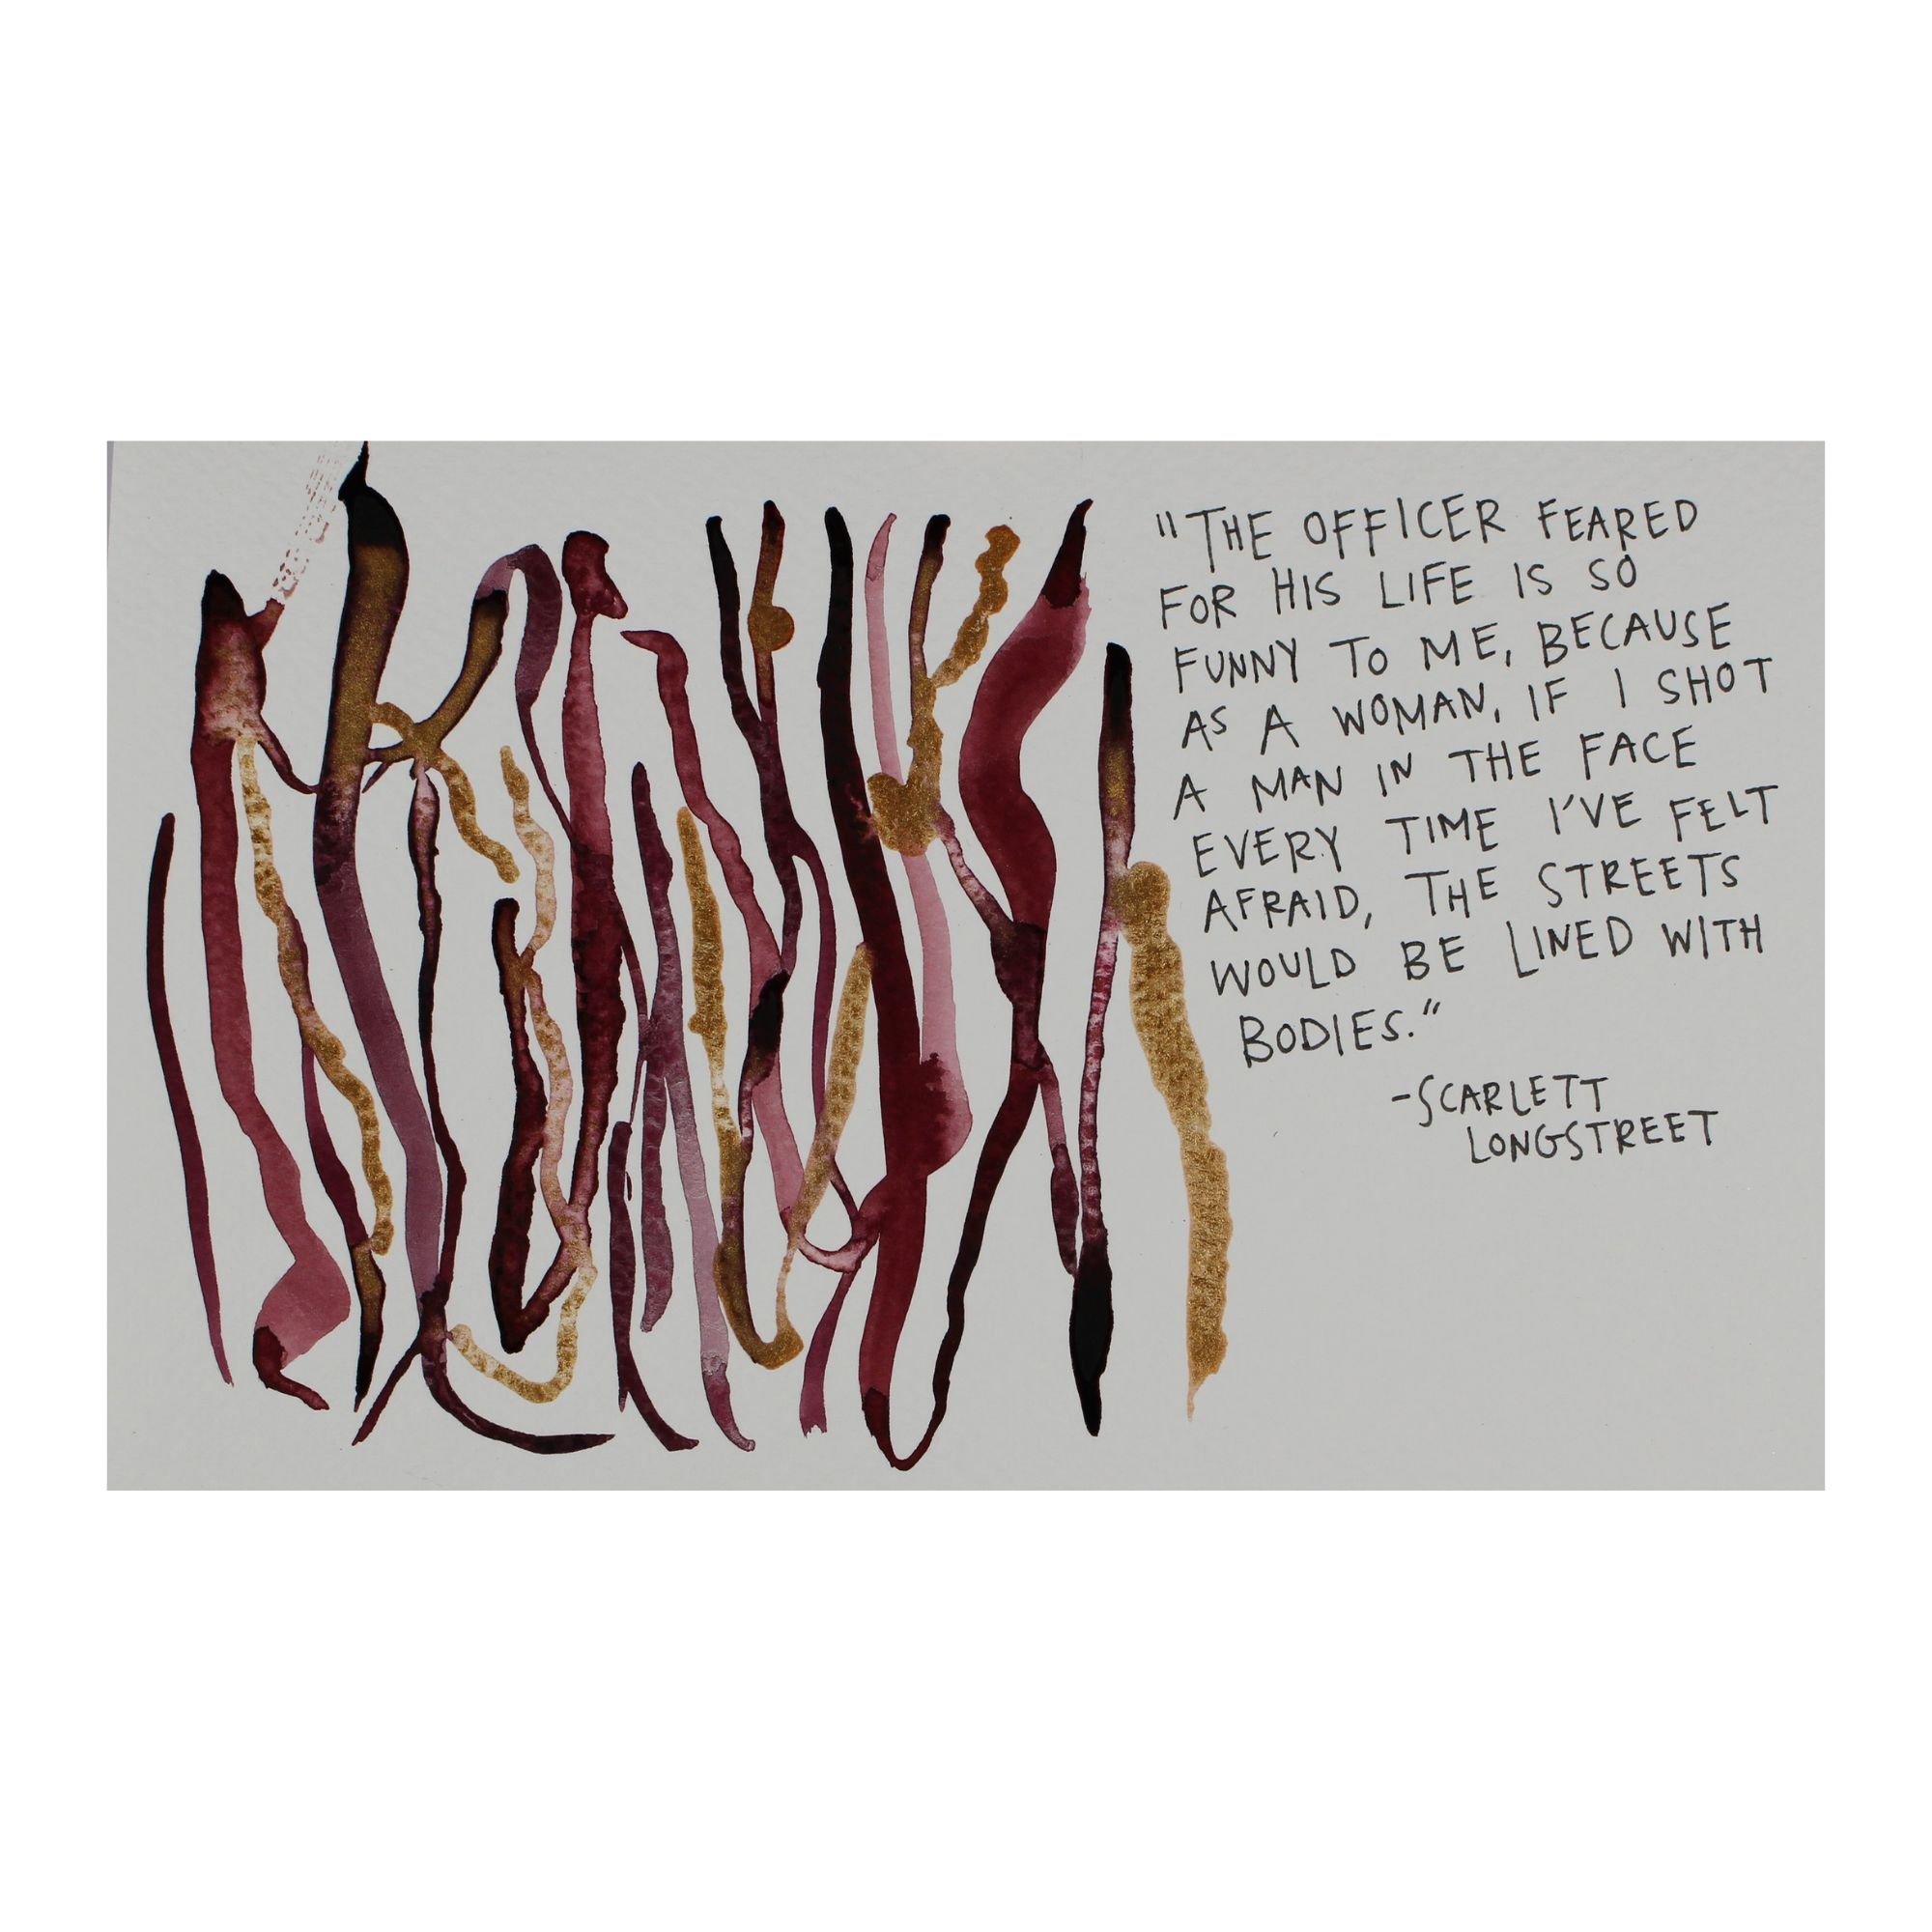 "THE OFFICER FEARED
FOR HIS LIFE IS SO
FUNNY TO ME, BECAUSE
AS A WOMAN, IF I SHOT
A MAN IN THE FACE
EVERY TIME I'VE FELT
AFRAID, THE STREETS
WOULD BE LINED WITH
BODIES."
-SCARLETT
LONGSTREET